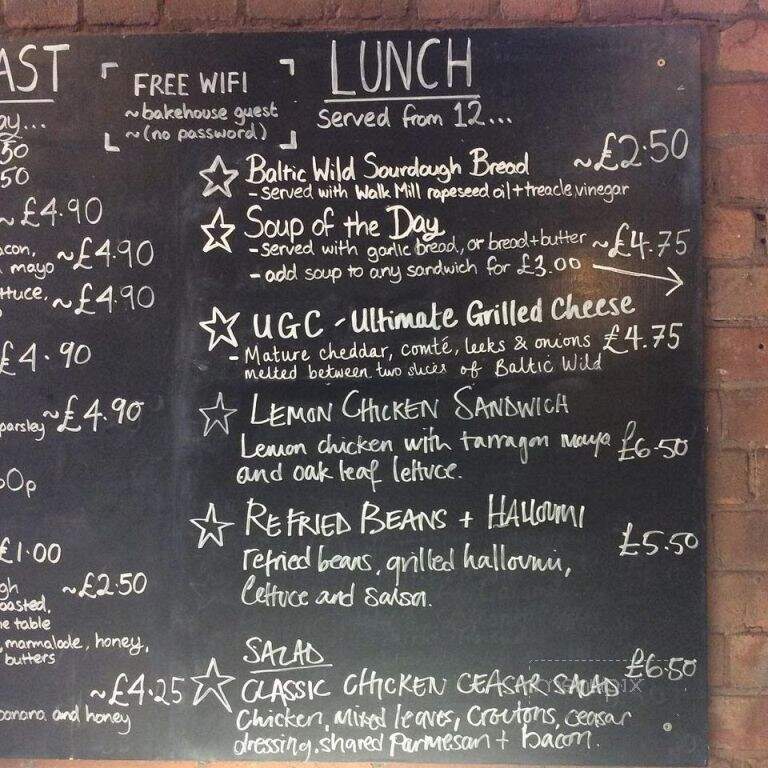 AST
ay...
50
50
~£4.90
acon,
mayo ~£4.90
ttuce, ~£4.90
£4.90
parsley ~£4.90
0p
£1.00
gh ~£2.50
oasted,
e table
marmalade, honey,
butters
~£4.25
banana and honey
FREE WIFI
~bakehouse guest
~(no password)
LUNCH
Served from 12...
Baltic Wild Sourdough Bread ~£2.50
- served with Walk Mill rapeseed oil + treacle vinegar
Soup of the Day
- served with garlic bread, or bread+butter ~£4.75
- add soup to any sandwich for £3.00
UGC - Ultimate Grilled Cheese
- Mature cheddar, comté, leeks & onions £4.75
melted between two slices of Baltic Wild
LEMON CHICKEN SANDWICH
Lemon chicken with tarragon mayo £6.50
and oak leaf lettuce.
REFRIED BEANS + HALLOUMI
£5.50
refried beans, grilled halloumi,
lettuce and salsa.
SALAD
£6.50
CLASSIC CHICKEN CEASAR SALAD
Chicken, Mixed leaves, Croutons, ceasar
dressing, shared Parmesan + bacon.